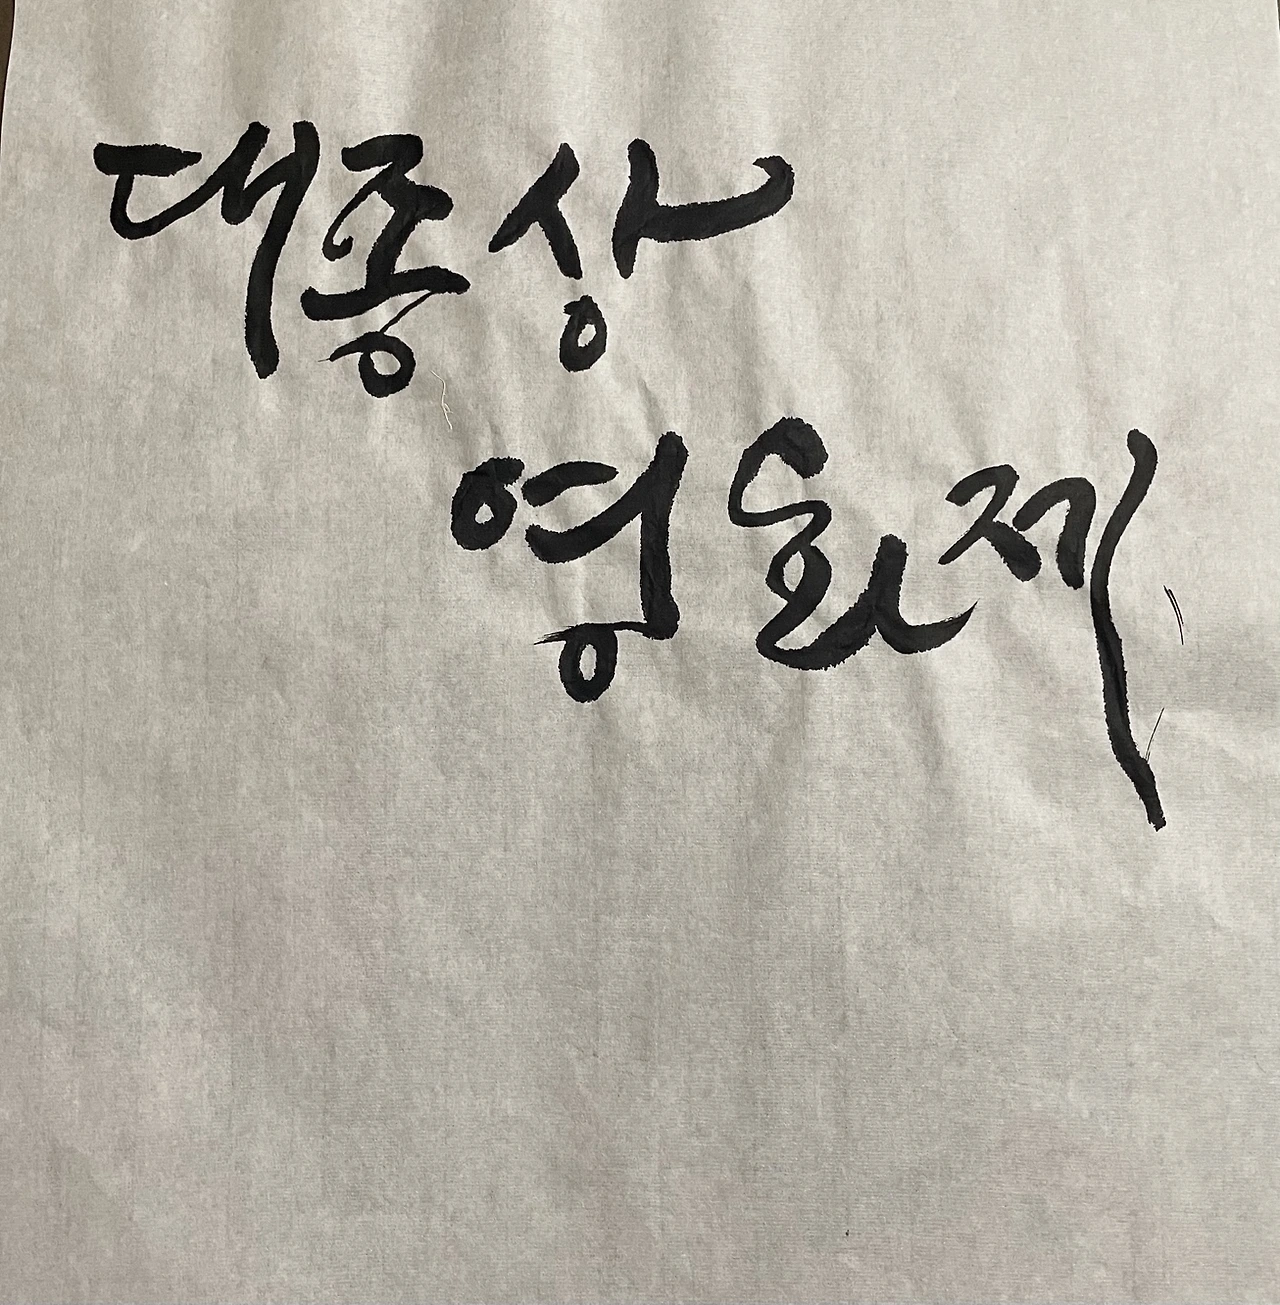 대종상
영화제